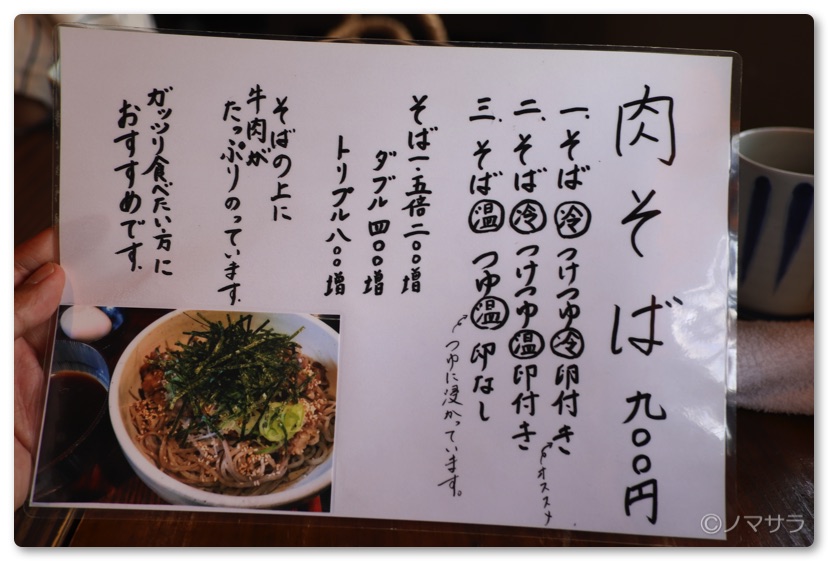 肉そば 九〇〇円
一、そば冷 つけつゆ冷 卵付き
二、そば冷 つけつゆ温 卵付き
オススメ
三、そば温 つゆ温 卵なし
つゆに浸かっています。
そば一.五倍 二〇〇増
ダブル 四〇〇増
トリプル 八〇〇増
そばの上に
牛肉が
たっぷりのっています.
ガッツリ食べたい方に
おすすめです.
©ノマサラ